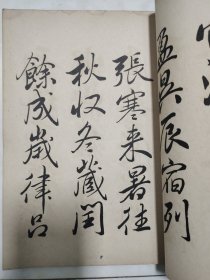 盈昃辰宿列
張寒来暑往
秋收冬藏閏
餘成歲律呂